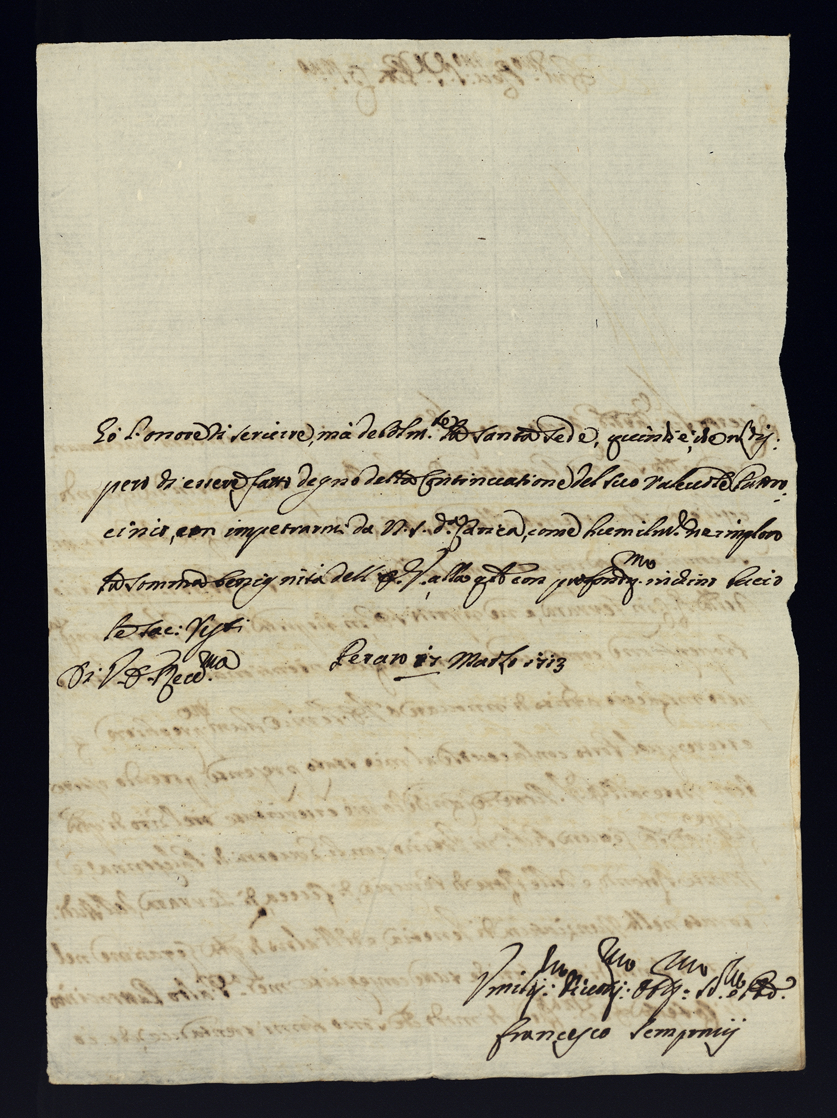 hò l'onore di servirre, mà debolm.te la Santa Sede, quindi è, che
pero di essere fatto degno della Continuatione del suo valevole Patro-
cinio, con impetrarmi da N. S. d.a Carica, come humilm.te ne imploro
la somma benignità dell' E. V., alla q.le con profondiss.mo inchino bacio
le Sac: Vesti
Di V. E. Rev.ma Pesaro 17 Marzo 1713
Vmiliss.mo Divotiss.mo Obblig.mo Se.re
Francesco Sempronij